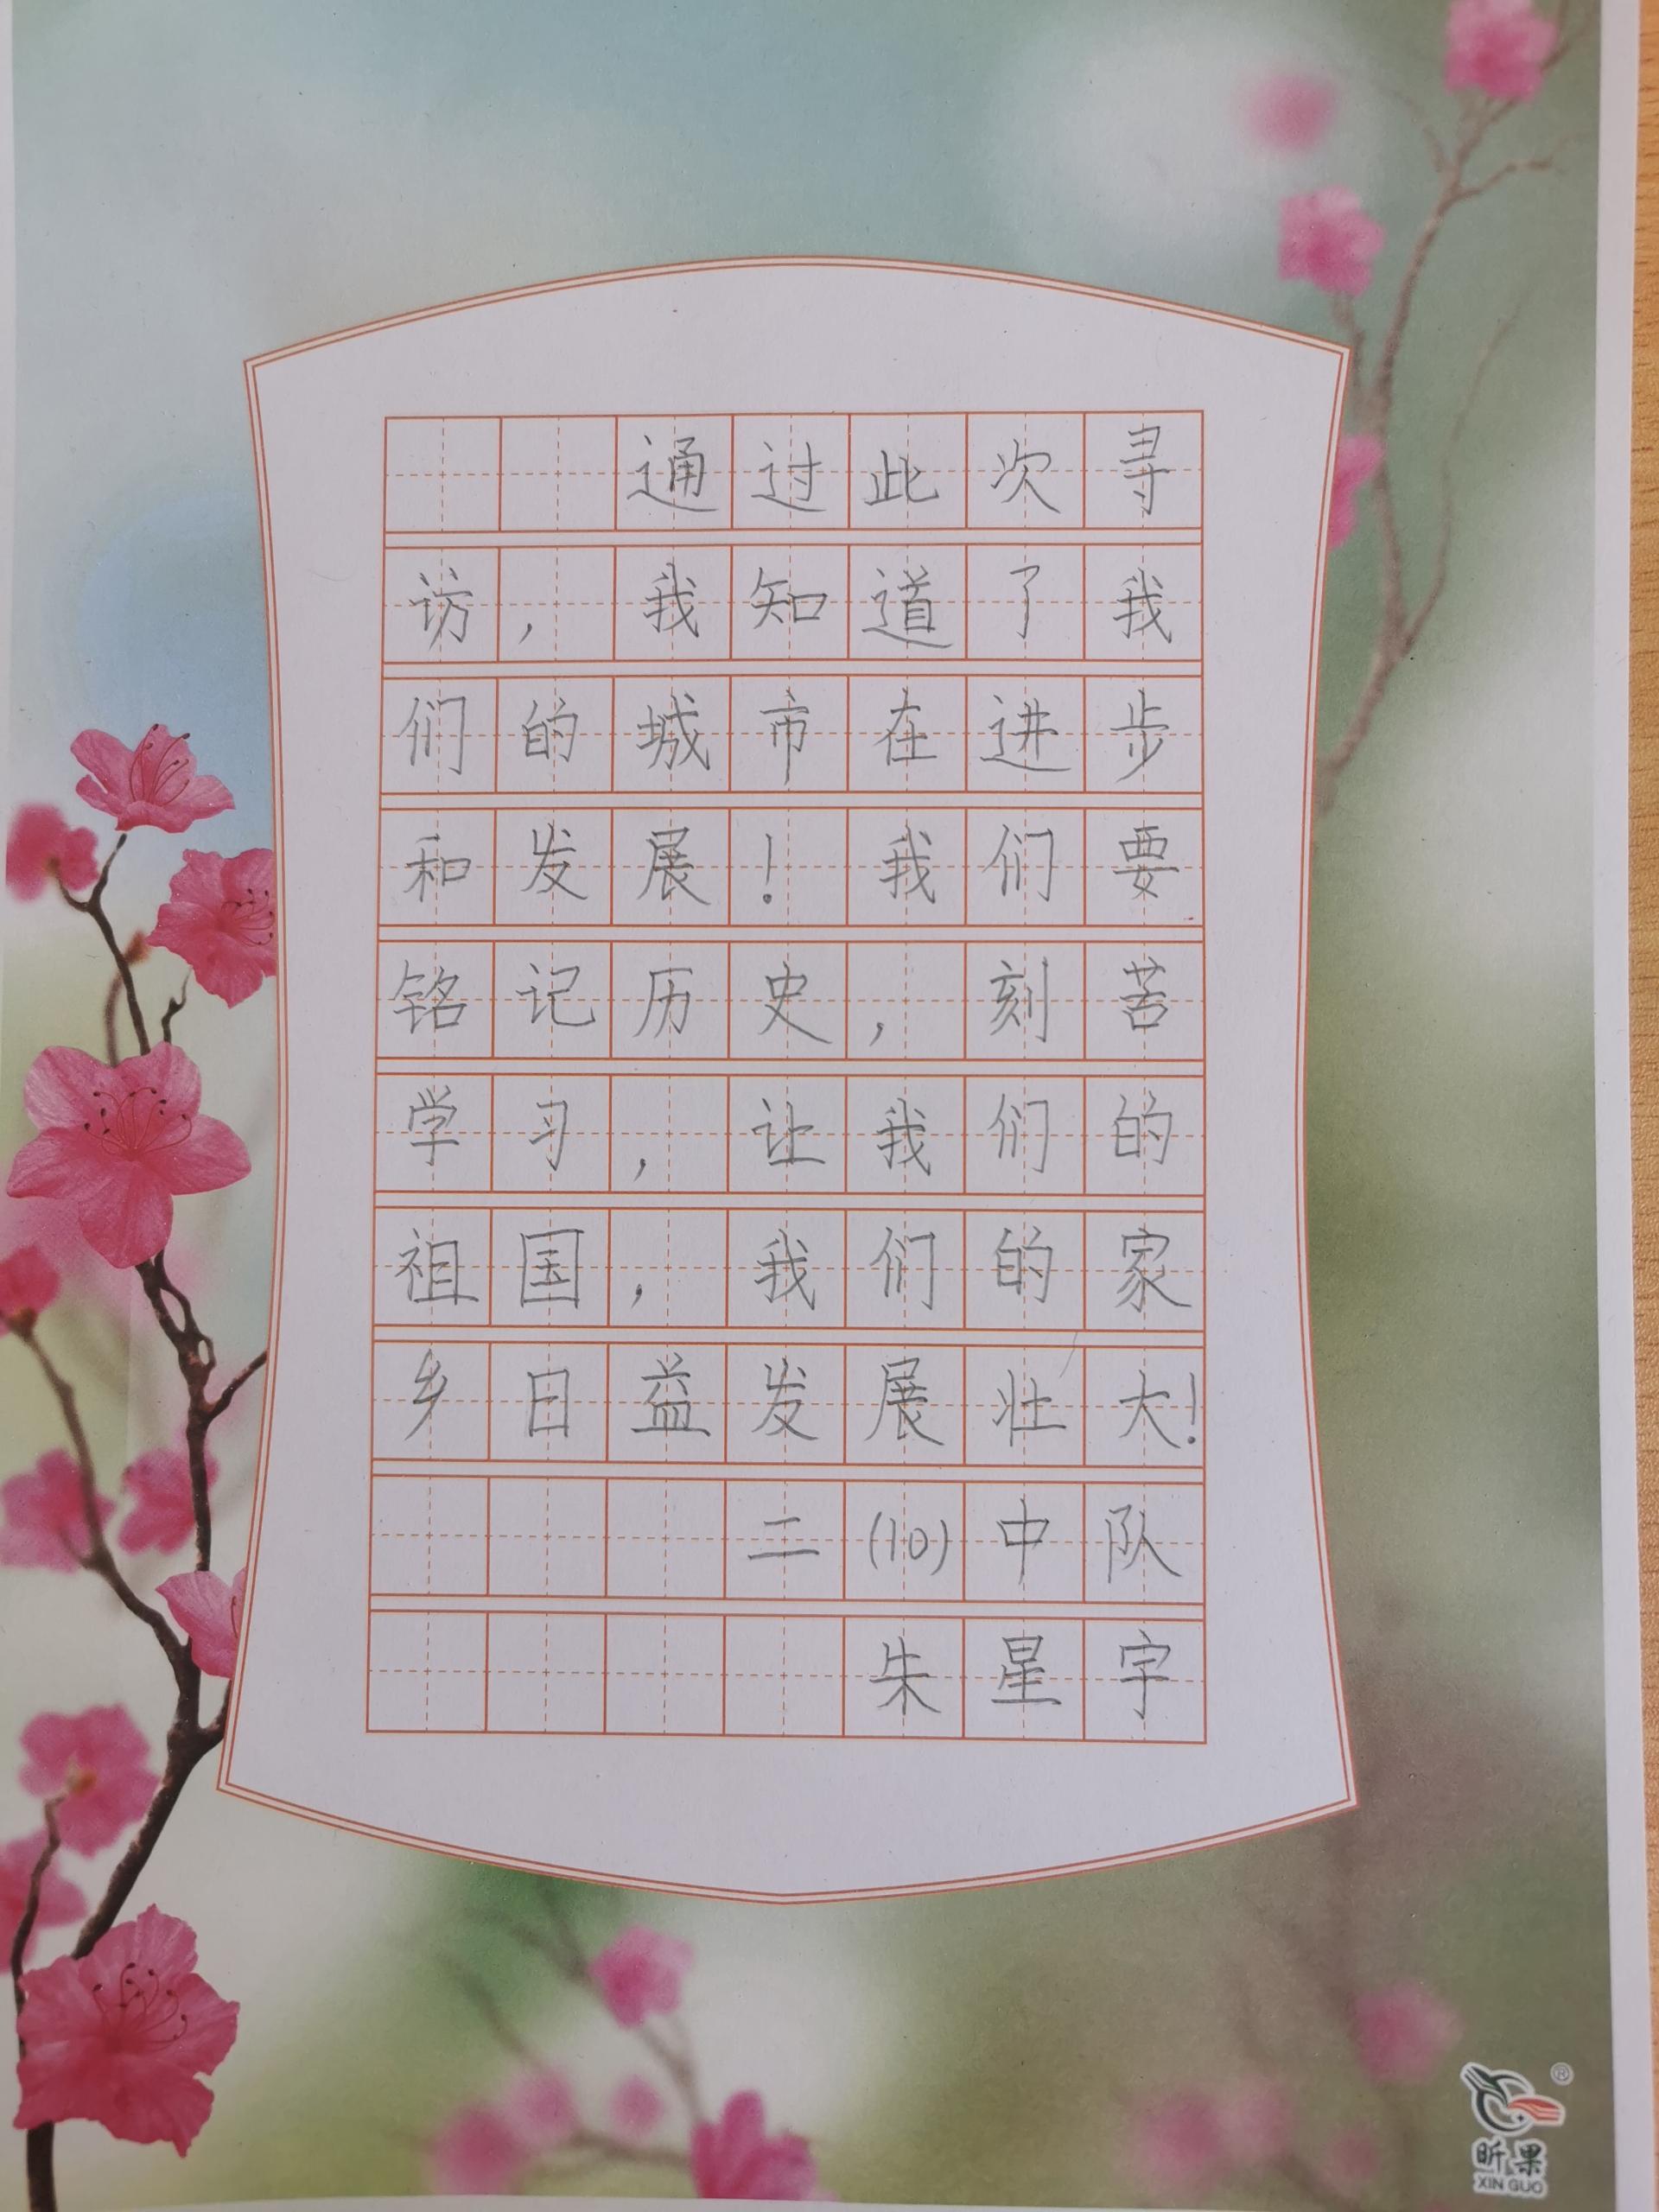 通过此次寻
访，我知道了我
们的城市在进步
和发展！我们要
铭记历史，刻苦
学习，让我们的
祖国，我们的家
乡日益发展壮大！
二(10)中队
朱星宇
®
昕果
XIN GUO